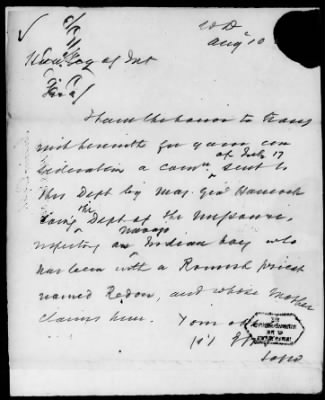 WD
Aug 10
Hon. Secy of Int
Sir
I have the honor to trans
mit herewith for your con
sideration a comn of July 17 sent to
this Dept by Maj. Genl Hancock
the Dept of the Missouri,
respecting an Navajo Indian boy who
has been with a Romish priest
named Redon, and whose mother
claims him. Your